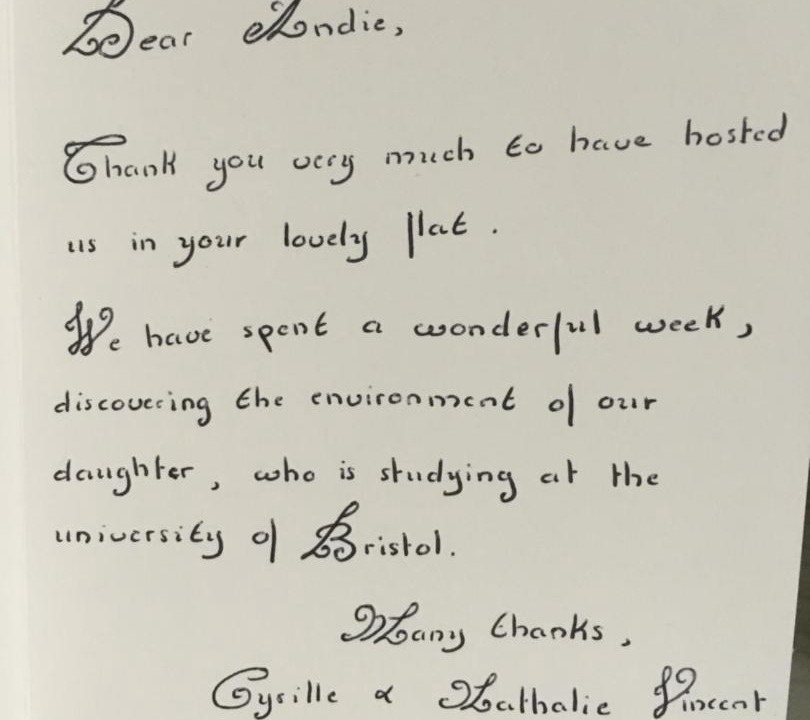 Dear Andie,
Thank you very much to have hosted
us in your lovely flat.
We have spent a wonderful week,
discovering the environment of our
daughter, who is studying at the
university of Bristol.
Many thanks,
Cyrille & Nathalie Vincent